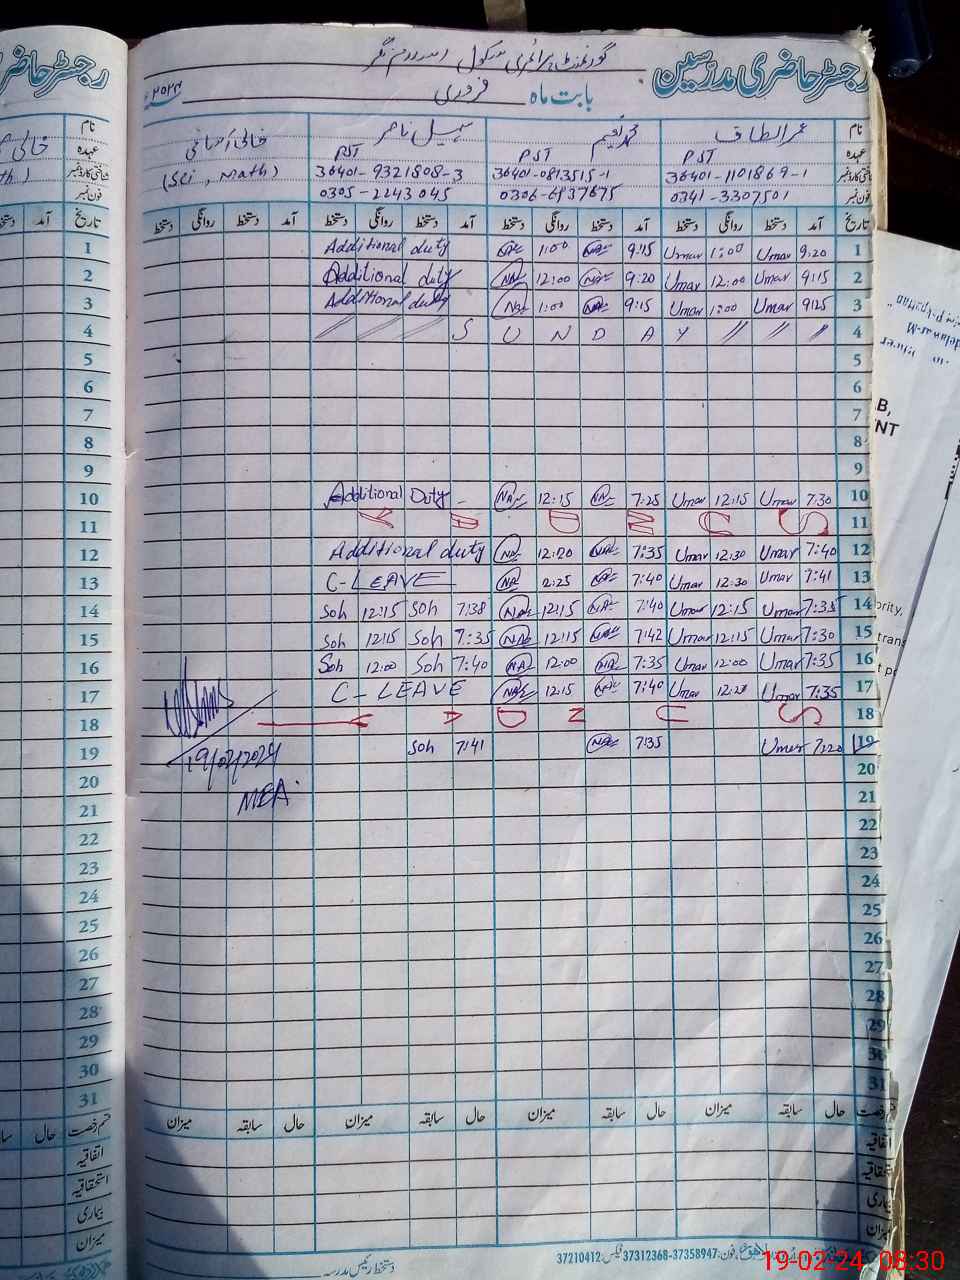 رجسٹر حاضری مدرسین گورنمنٹ پرائمری سکول
بابت ماہ فروری ۲۰۲۴
نام عمر الطاف محمد نعیم سہیل ناصر خالی آسامی
عہدہ PST PST PST (Sci, Math)
شناختی کارڈ نمبر 36401-1101869-1 36401-0813515-1 36401-9321808-3
فون نمبر 0341-3307501 0306-6937675 0305-2243045
تاریخ آمد دستخط روانگی دستخط آمد دستخط روانگی دستخط آمد دستخط روانگی دستخط آمد دستخط روانگی دستخط
Additional duty NA 1:00 NA 9:15 Umar 1:00 Umar 9:20 1
Additional duty NA 12:00 NA 9:20 Umar 12:00 Umar 9:15 2
Additional duty NA 1:00 NA 9:15 Umar 1:00 Umar 9:25 3
S U N D A Y 4
5
6
7
8
9
Additional Duty NA 12:15 NA 7:25 Umar 12:15 Umar 7:30 10
Y A D N U S 11
Additional duty NA 12:20 NA 7:35 Umar 12:30 Umar 7:40 12
C-LEAVE NA 2:25 NA 7:40 Umar 12:30 Umar 7:41 13
Soh 12:15 Soh 7:38 NA 12:15 NA 7:40 Umar 12:15 Umar 7:35 14
Soh 12:15 Soh 7:35 NA 12:15 NA 7:42 Umar 12:15 Umar 7:30 15
Soh 12:00 Soh 7:40 NA 12:00 NA 7:35 Umar 12:00 Umar 7:35 16
C-LEAVE NA 12:15 NA 7:40 Umar 12:20 Umar 7:35 17
Y A D N U S 18
19/02/2024 Soh 7:41 NA 7:35 Umar 7:20 19
20
MEA. 21
22
23
24
25
26
27
28
29
30
31
قسم رخصت حال سابقہ میزان حال سابقہ میزان حال سابقہ میزان
اتفاقیہ
استحقاقیہ
بیماری
میزان
دستخط رئیس مدرسہ
فون: 37358947-37312368 فیکس: 37210412
19-02-24 08:30